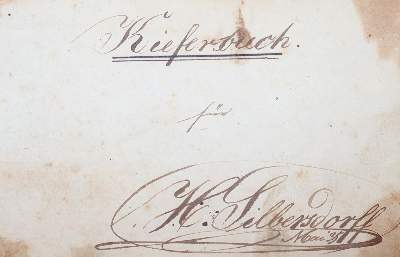 Kieferbuch.
für
H: Silbersdorff